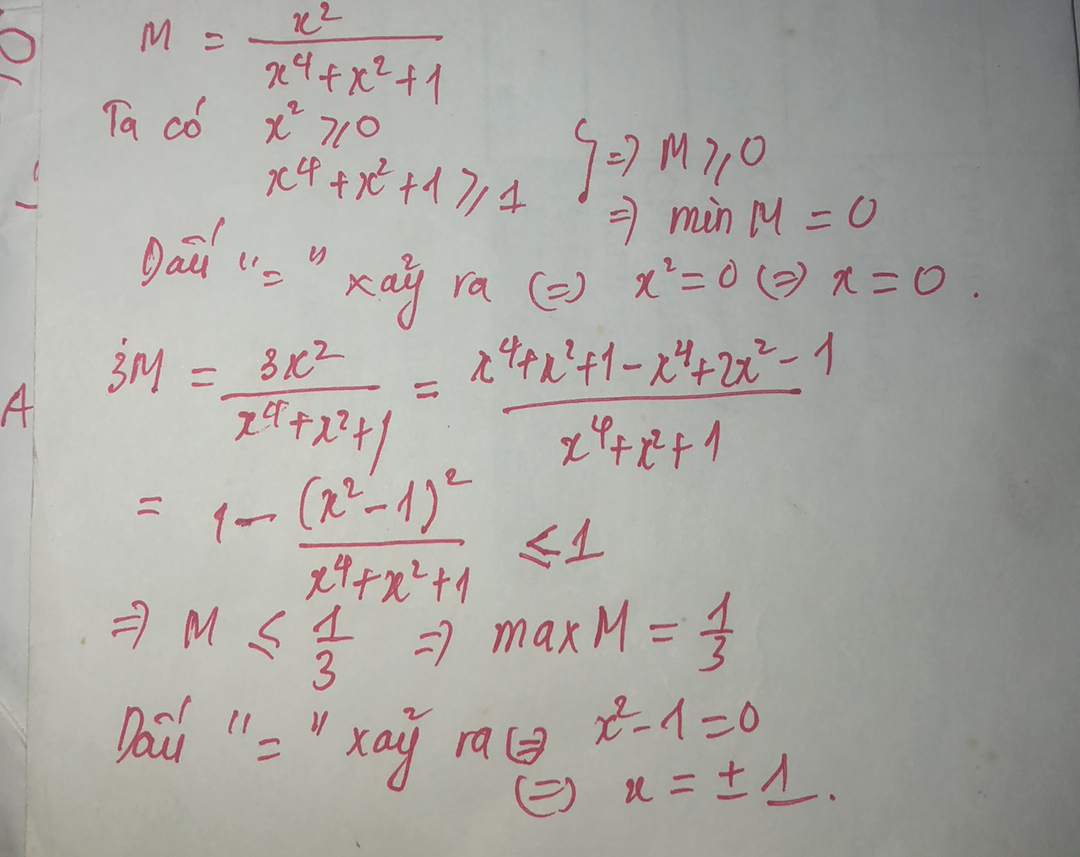 M = x²/(x⁴+x²+1)
Ta có x² ⩾ 0
x⁴+x²+1 ⩾ 1 } => M ⩾ 0
=> min M = 0
Dấu "=" xảy ra (=) x² = 0 (=) x = 0.
3M = 3x²/(x⁴+x²+1) = (x⁴+x²+1-x⁴+2x²-1)/(x⁴+x²+1)
= 1 - (x²-1)²/(x⁴+x²+1) ≤ 1
=> M ≤ 1/3 => max M = 1/3
Dấu "=" xảy ra (=) x²-1=0
(=) x = ±1.
A